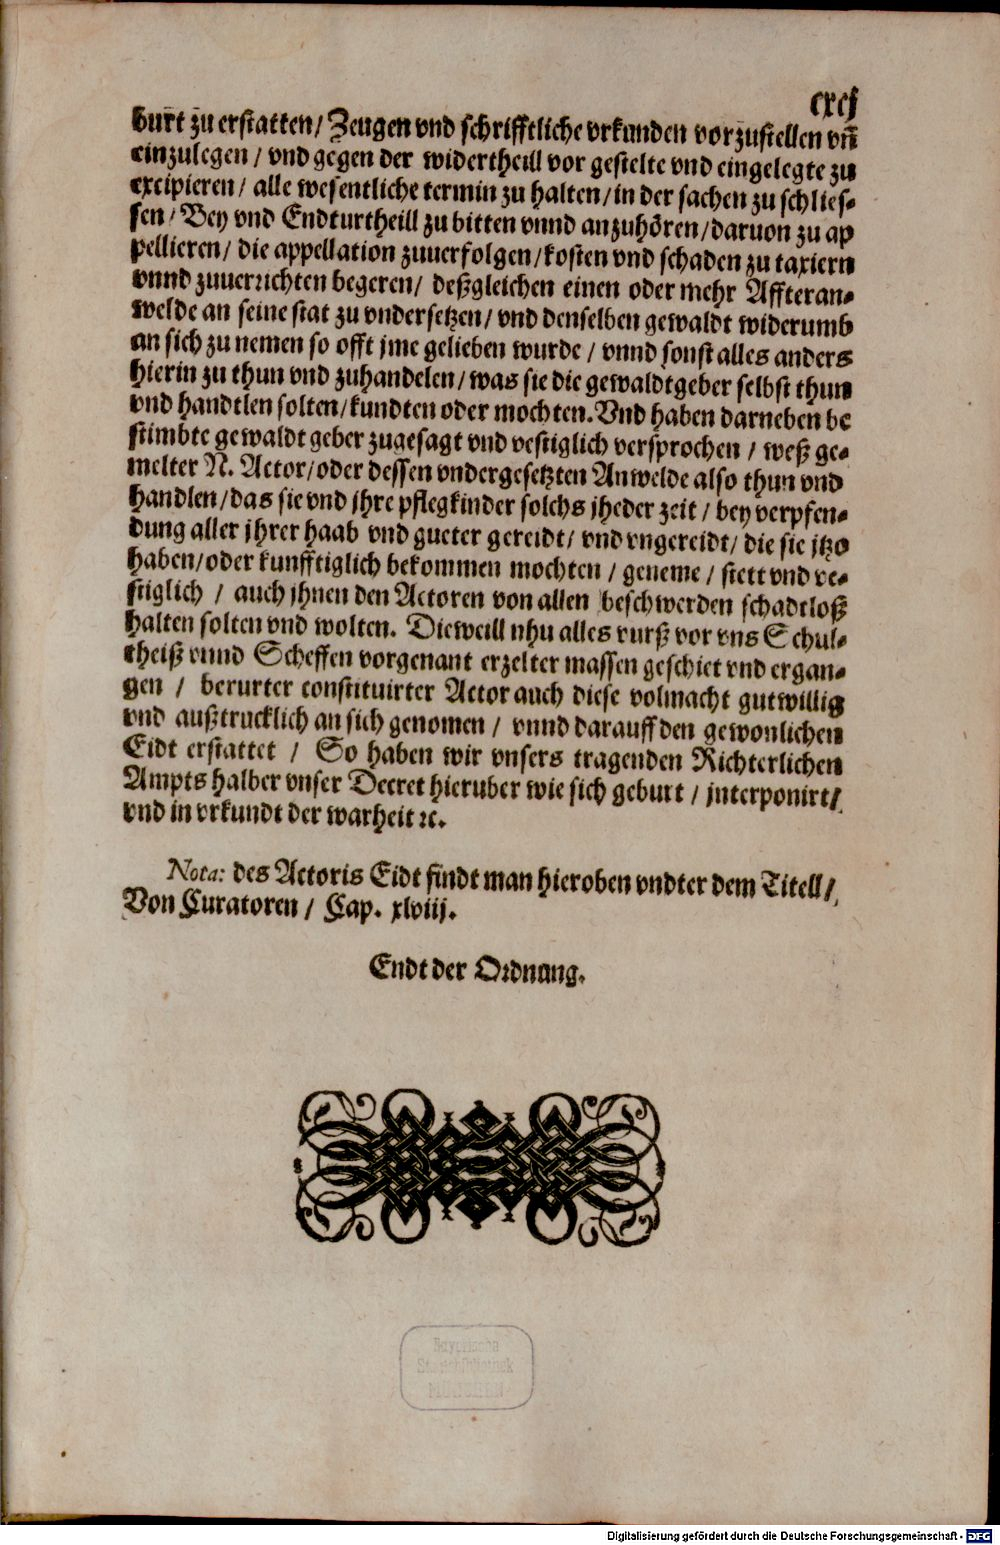 cxcj
burt zu erstatten/ Zeugen vnd schrifftliche vrkunden vorzustellen vñ
einzulegen / vnd gegen der widertheill vor gestelte vnd eingelegte zu
excipieren/ alle wesentliche termin zu halten/ in der sachen zu schlies-
sen/ Bey vnd Endturtheill zu bitten vnnd anzuhören/ daruon zu ap
pellieren/ die appellation zuuerfolgen/ kosten vnd schaden zu taxiern
vnnd zuuerrichten begeren/ deßgleichen einen oder mehr Affteran-
welde an seine stat zu vndersetzen/ vnd denselben gewaldt widerumb
an sich zu nemen so offt jme gelieben wurde / vnnd sonst alles anders
hierin zu thun vnd zuhandelen/ was sie die gewaldtgeber selbst thun
vnd handtlen solten/ kundten oder mochten. Vnd haben darneben be
stimbte gewaldt geber zugesagt vnd vestiglich versprochen / weß ge-
melter N. Actor/ oder dessen vndergesetzten Anwelde also thun vnd
handlen/ das sie vnd jhre pflegkinder solchs jheder zeit / bey verpfen-
dung aller jhrer haab vnd gueter gereidt/ vnd vngereidt/ die sie jtzo
haben/ oder kunfftiglich bekommen mochten / geneme / stett vnd ve-
stiglich / auch jhnen den Actoren von allen beschwerden schadtloß
halten solten vnd wolten. Dieweill nhu alles vurß vor vns Schul-
theiß vnnd Scheffen vorgenant erzelter massen geschiet vnd ergan-
gen / berurter constituirter Actor auch diese volmacht gutwillig
vnd außtrucklich an sich genomen / vnnd darauff den gewonlichen
Eidt erstattet / So haben wir vnsers tragenden Richterlichen
Ampts halber vnser Decret hieruber wie sich geburt / jnterponirt/
vnd in vrkundt der warheit ꝛc.
Nota: des Actoris Eidt findt man hieroben vndter dem Titell/
Von Curatoren / Cap. xlviij.
Endt der Ordnung.
Bayerische
Staatsbibliothek
MÜNCHEN
Digitalisierung gefördert durch die Deutsche Forschungsgemeinschaft - DFG